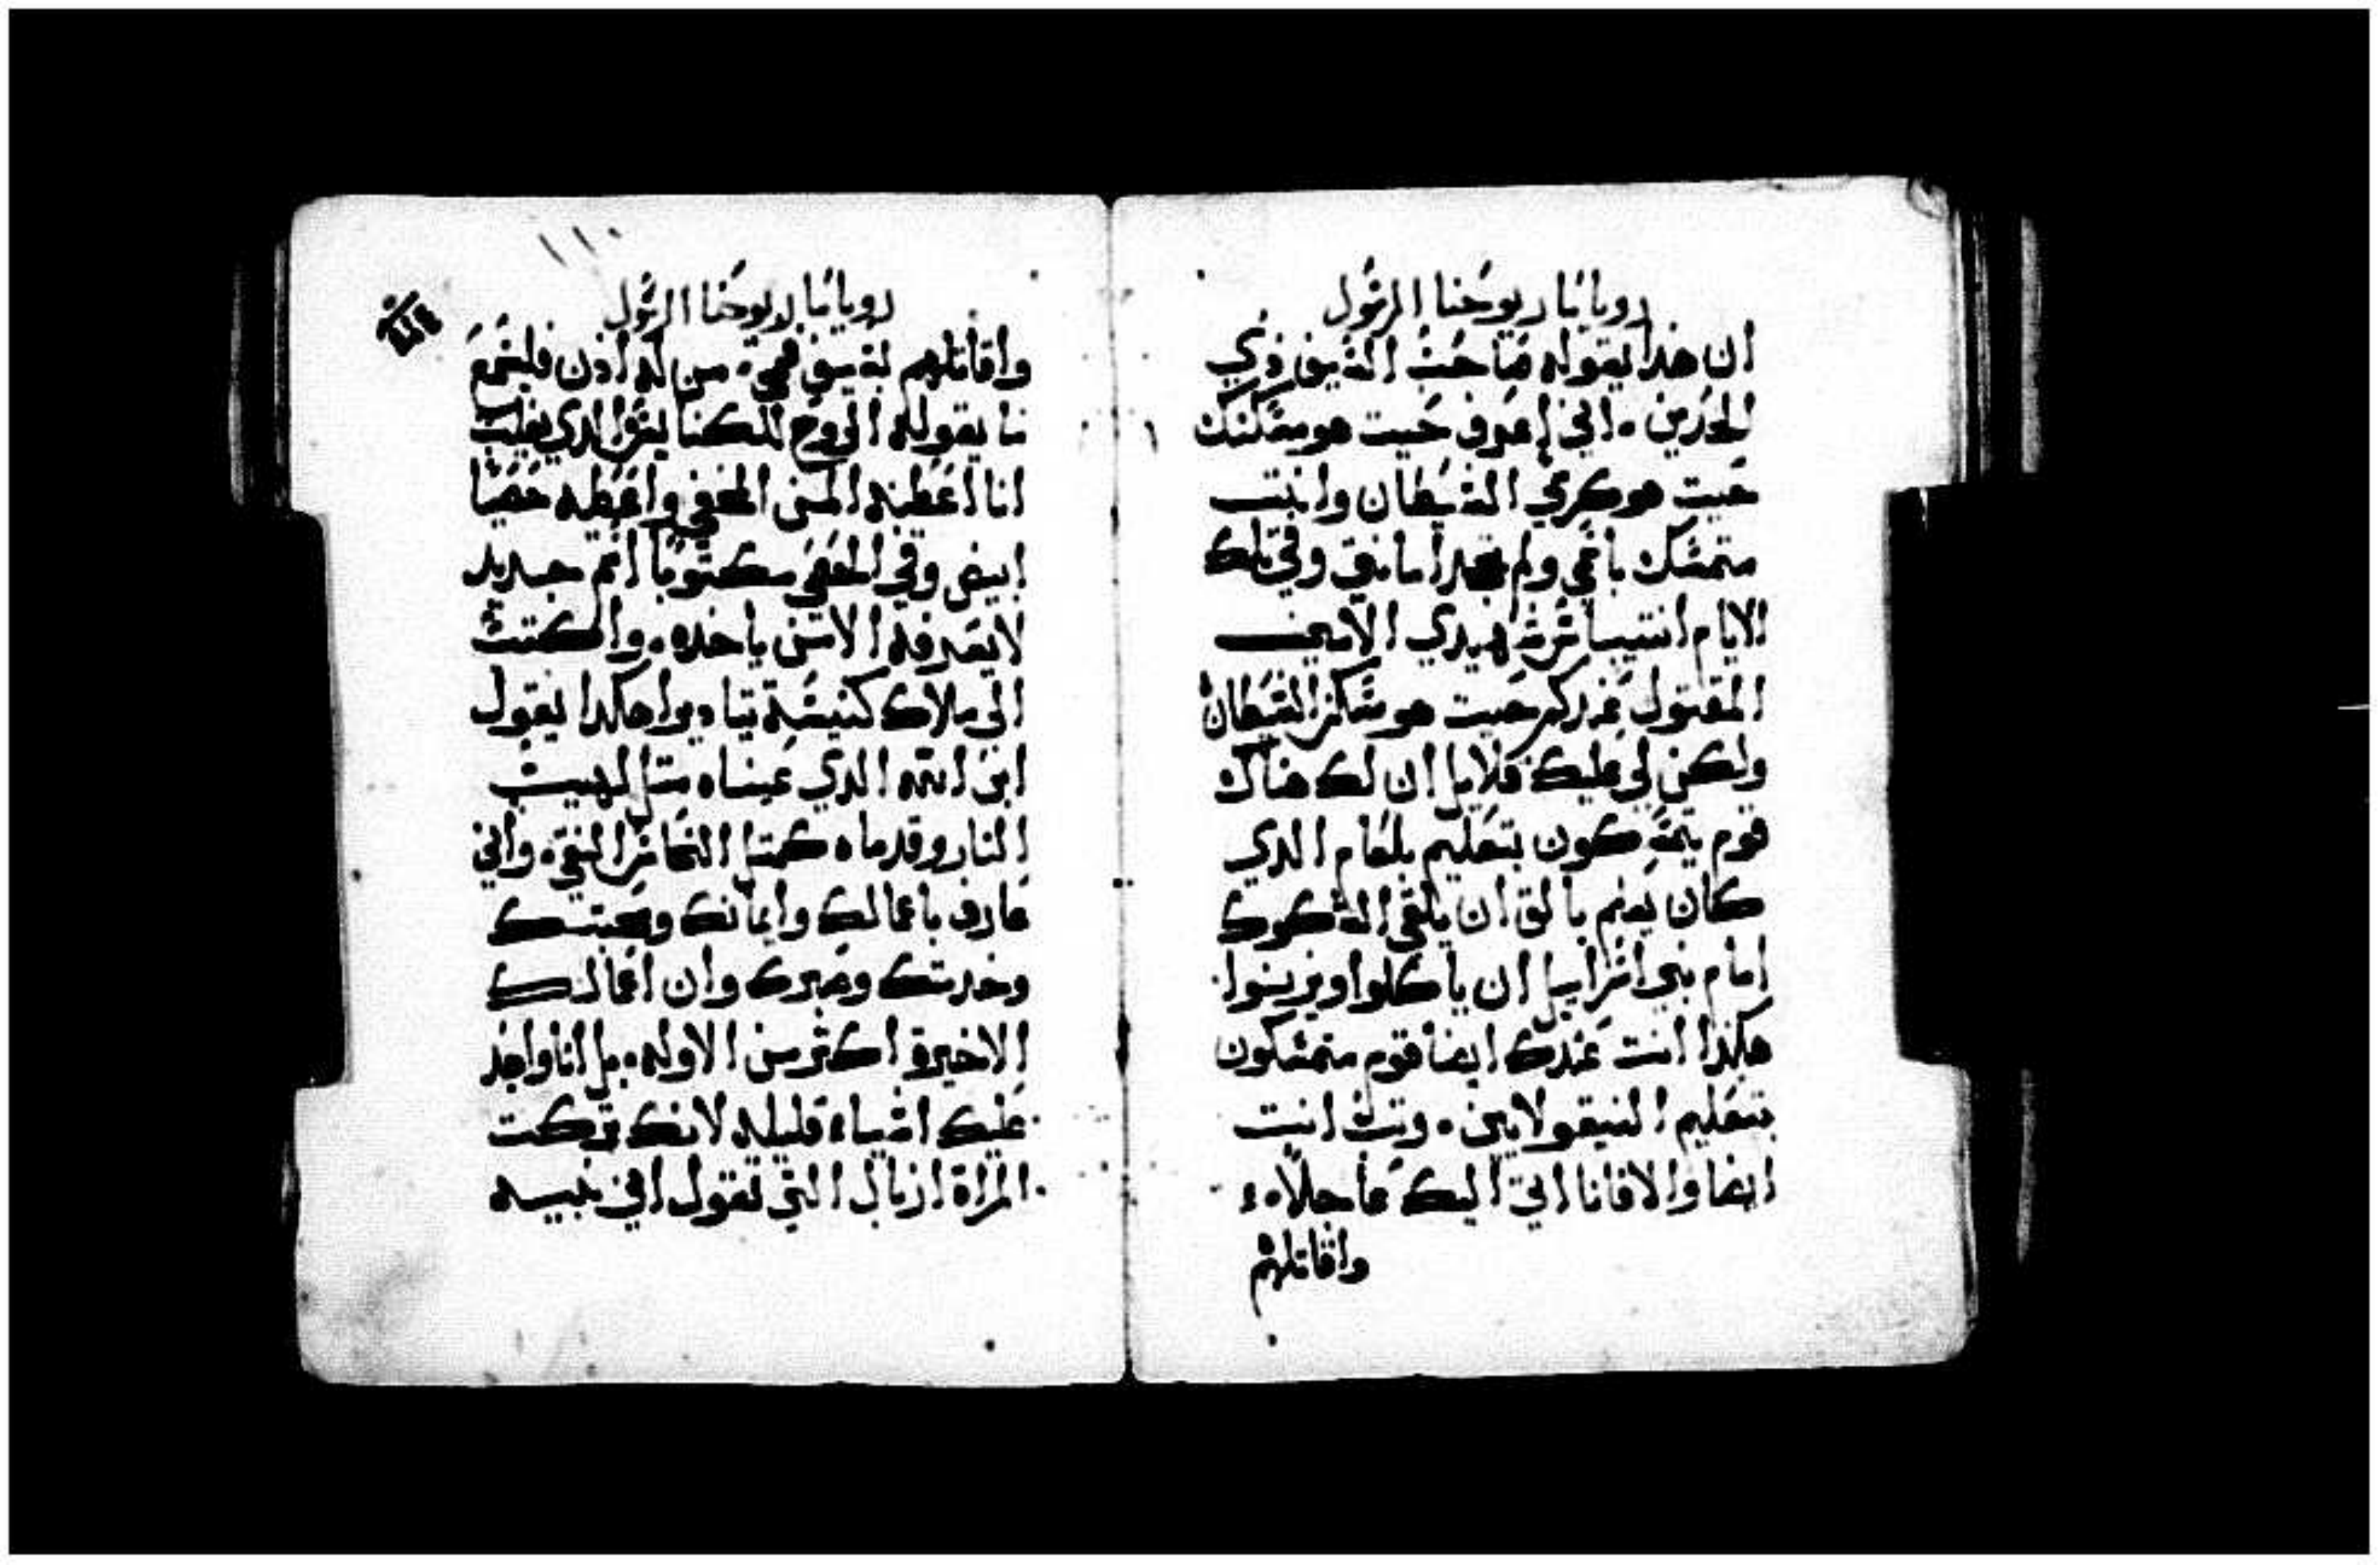 رويا مار يوحنا الرسول
ان هذا يقوله صاحب السيف ذي
الحدين ۰ اني اعرف حيت هو مسكنك
حيت هو كرسي الشيطان وانت
متمسك باسمي ولم تجحد امانتي وفي تلك
الايام شهيدي الامين
المقتول عندكم حيت هو مسكن الشيطان
ولكن لي عليك قلايل ان لك هناك
قوم يتمسكون بتعليم بلعام الدي
كان يعلم بالق ان يلقي الشكوك
امام بني اسراييل ان ياكلوا ويزنوا
هكذا انت عندك ايضا قوم متمسكون
بتعليم النيقولايين ۰ وتب انت
ايضا والا فانا اتي اليك عاجلا ۰
واقاتلهم
رويا مار يوحنا الرسول
واقاتلهم بسيف فمي ۰ من له ادن فليسمع
ما يقوله الروح للكنايس الدي يغلب
انا اعطيه المن المخفي واعطيه حصا
ابيض وفي الحصي مكتوبا اسم جديد
لا يعرفه الا من ياخده ۰ واكتب
الي ملاك كنيسة تياديرا هاكدا يقول
ابن الله الدي عيناه متل لهيب
النار وقدماه كمتل النحاس النقي ۰ واني
عارف باعمالك وايمانك ومحبتك
وخدمتك وصبرك وان اعمالك
الاخيرة اكثر من الاوله ۰ بل انا واجد
عليك اشياء قليله لانك تركت
المراة ازبال التي تقول اني نبيه